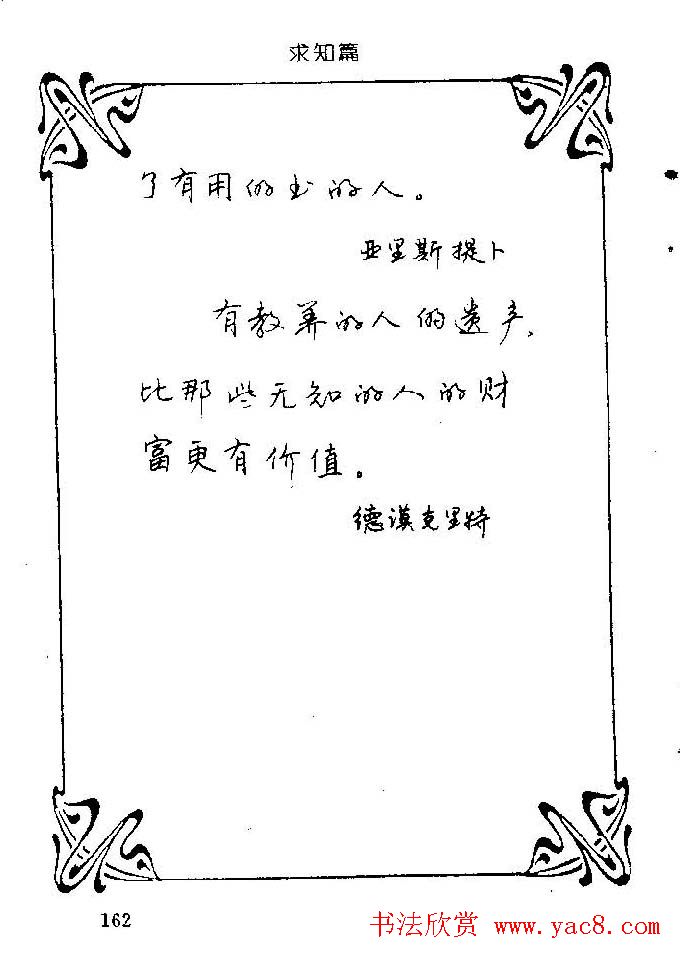 求知篇
了有用的书的人。
亚里斯提卜
有教养的人的遗产，
比那些无知的人的财
富更有价值。
德谟克里特
162
书法欣赏 www.yac8.com